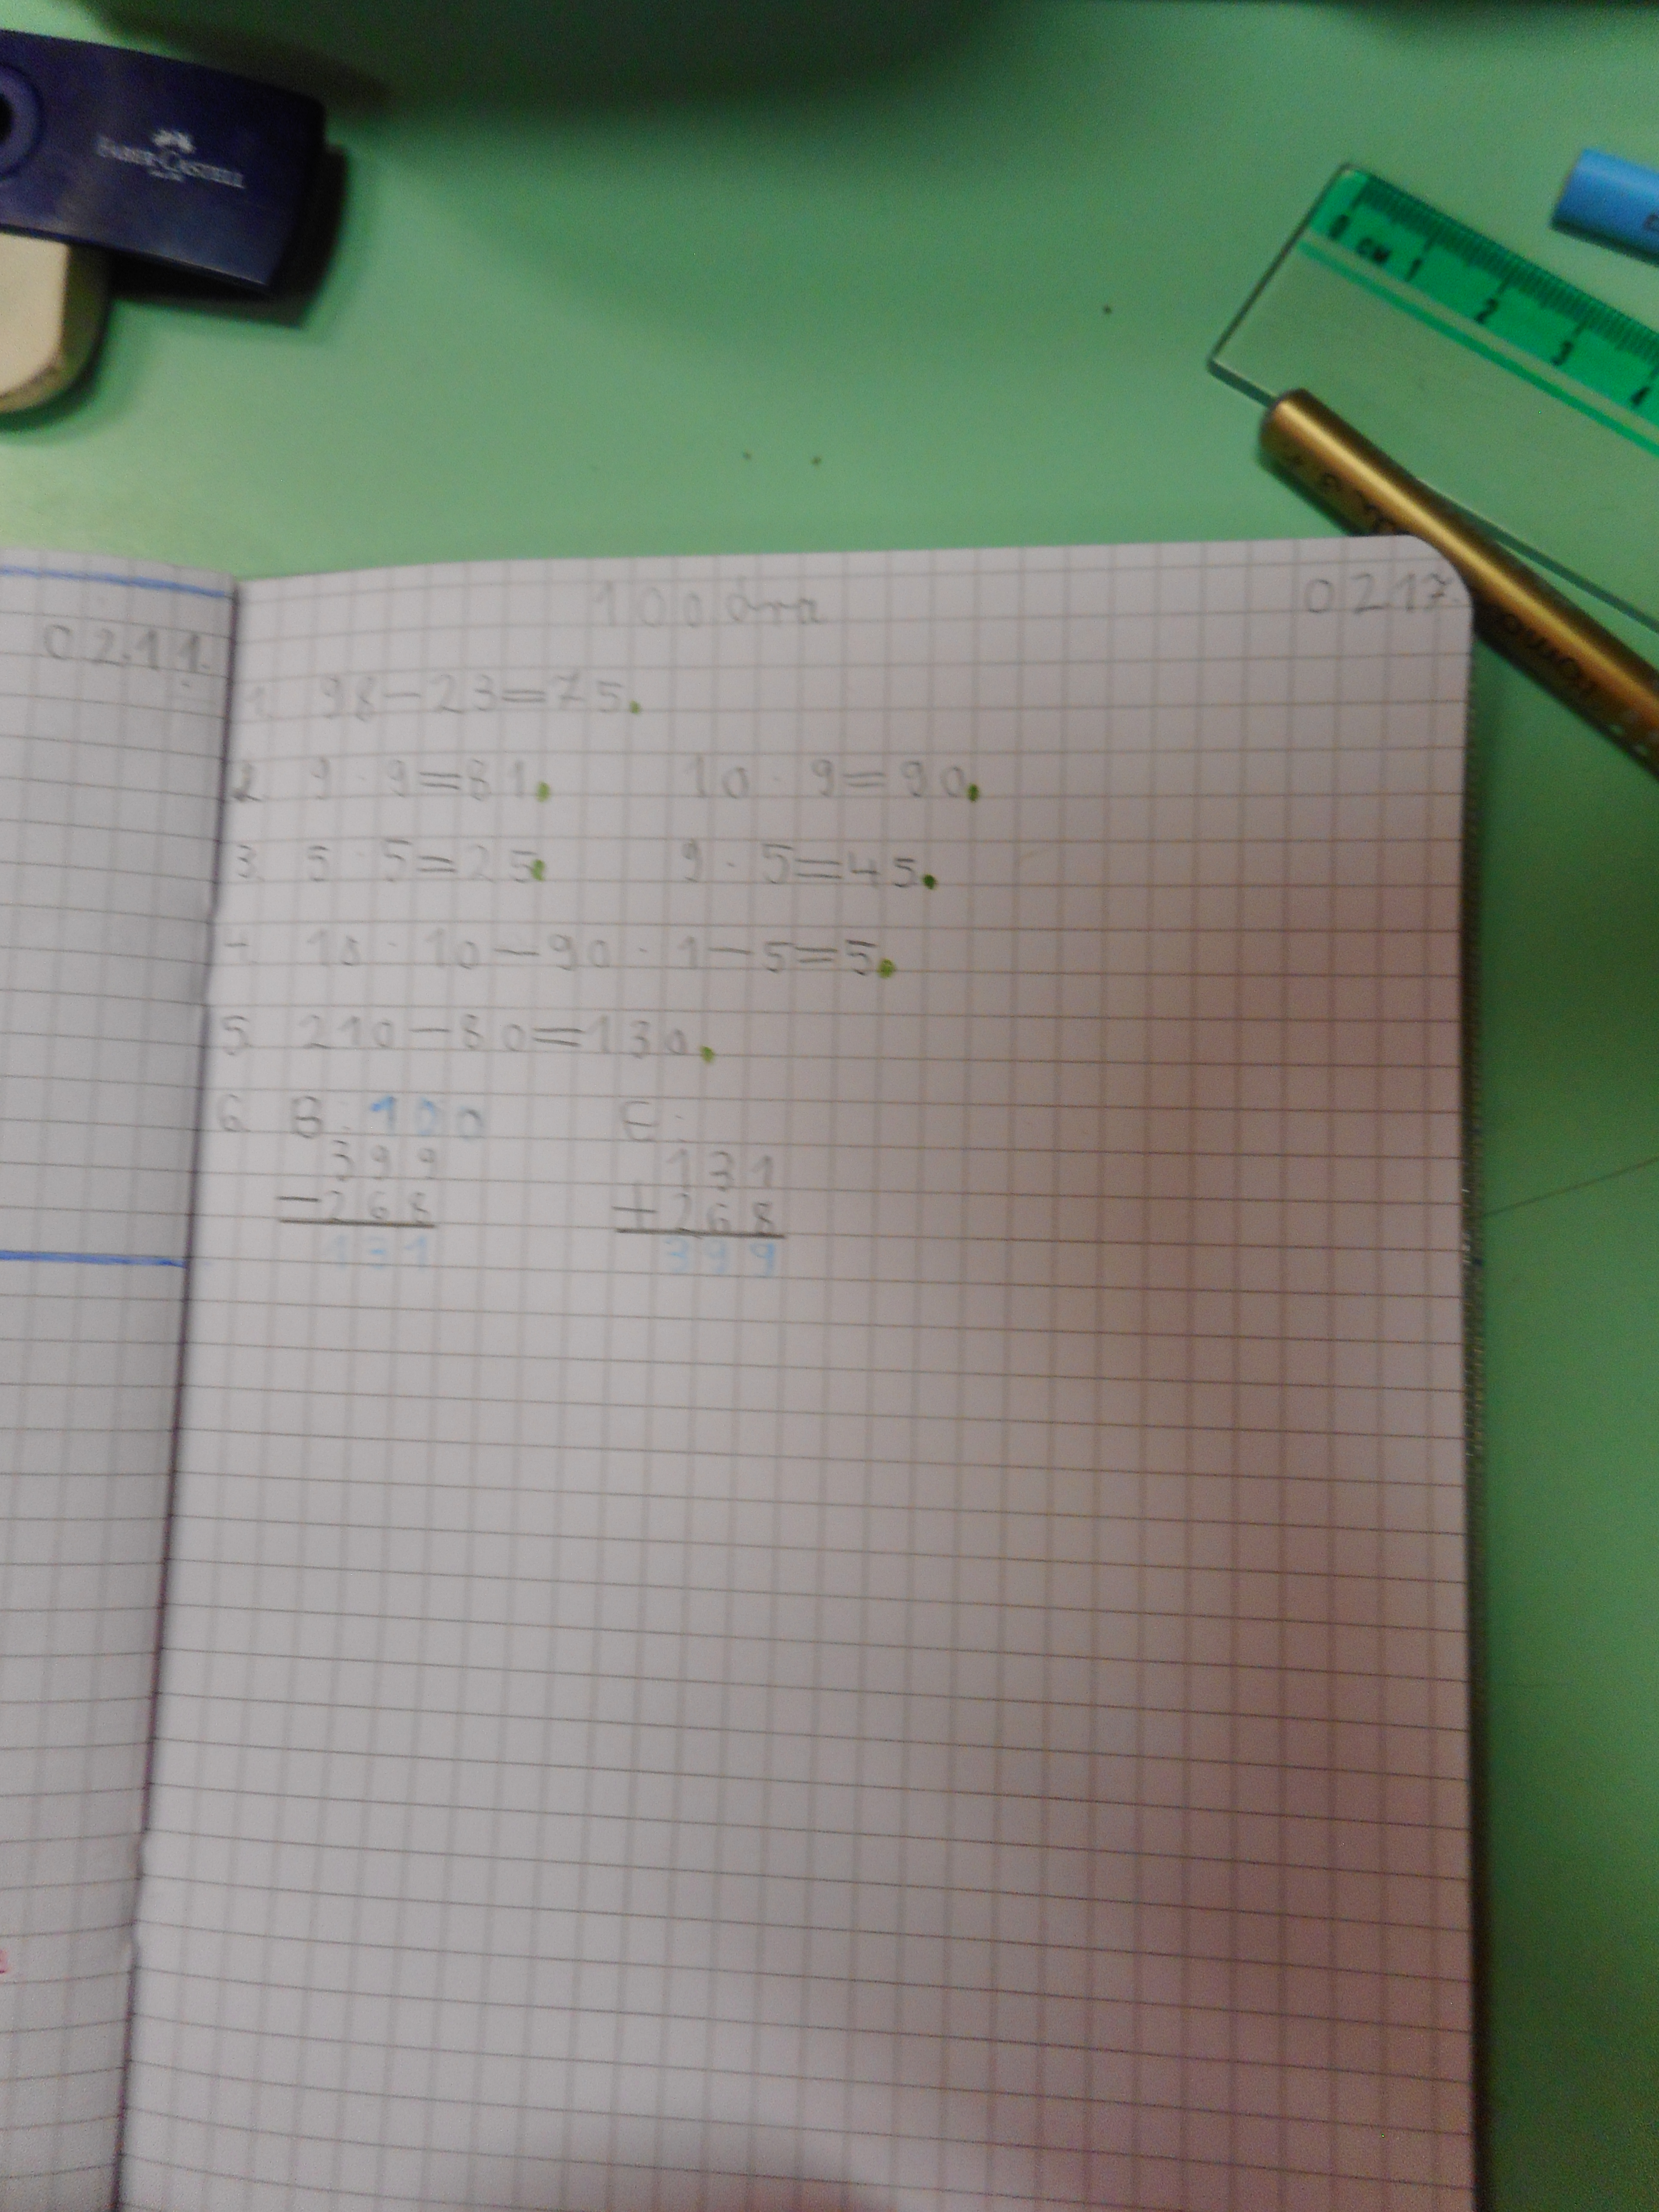 FABER-CASTELL
0 CM 1 2 3 4
02.11.
100 óra 0217.
1. 98-23=75.
2. 9·9=81. 10·9=90.
3. 5·5=25. 9·5=45.
4. 10·10-90·1-5=5.
5. 210-80=130.
6. B: 100 E:
399 131
-268 +268
131 399